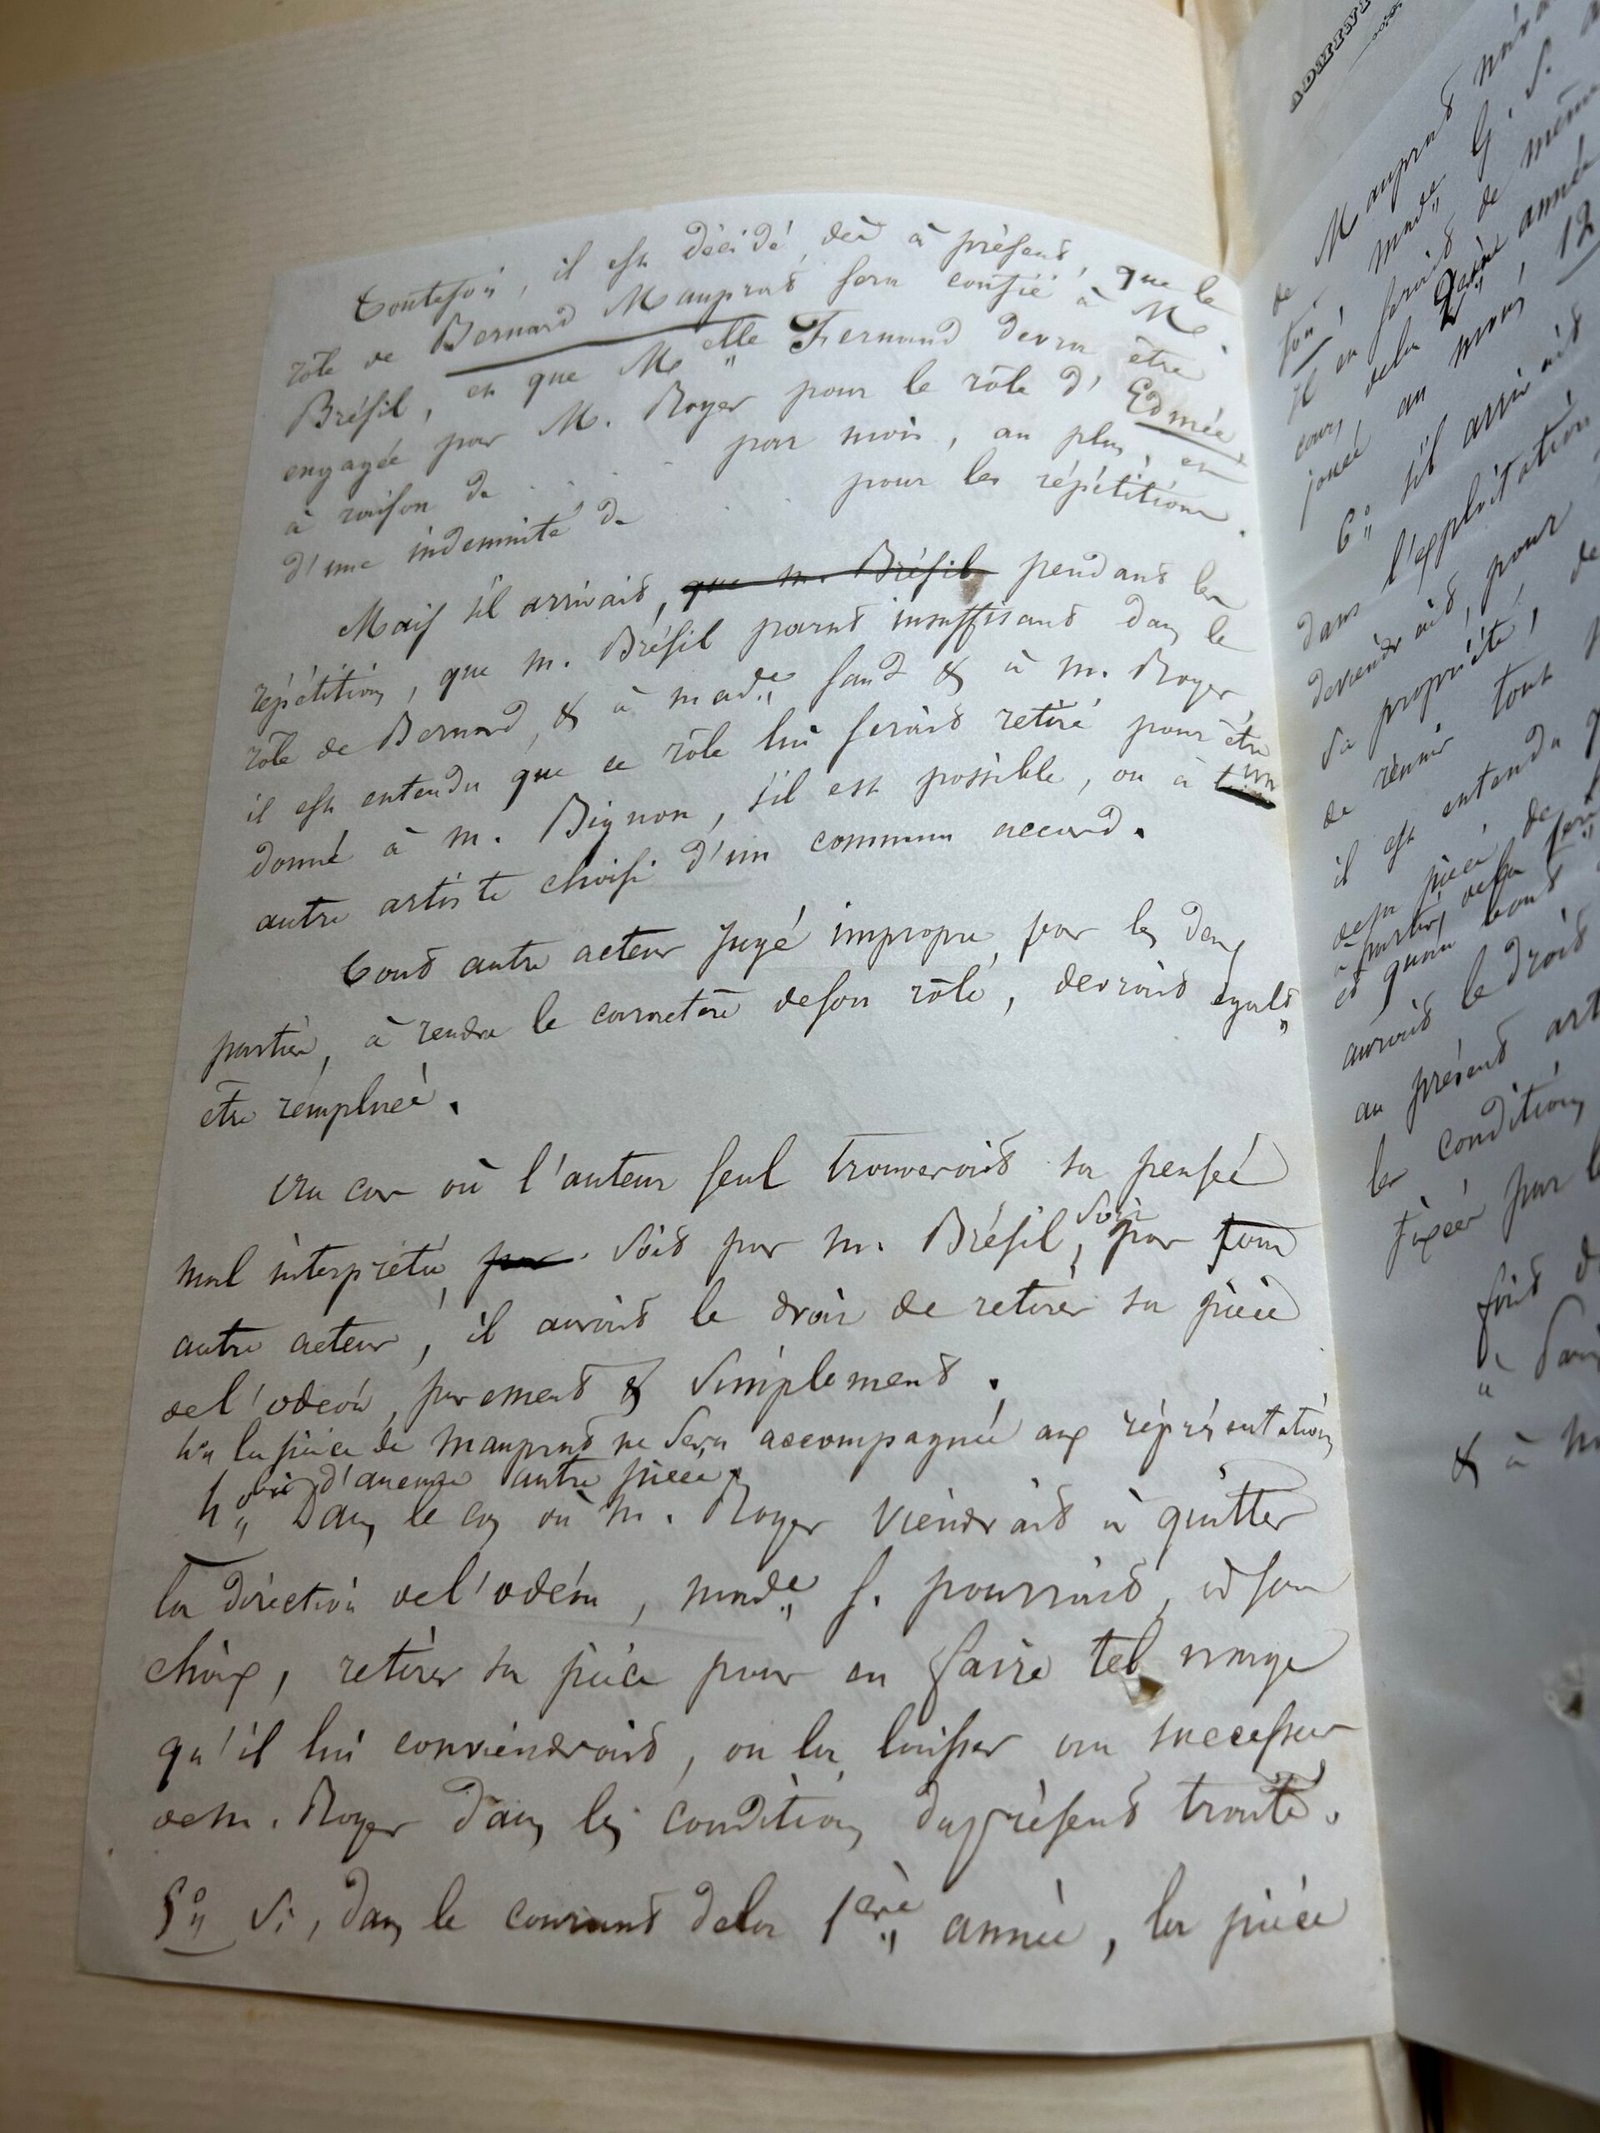 Toutefois, il est décidé, dès à présent, que le
rôle de Bernard Mauprat sera confié à M.
Brésil, et que Melle Fernand devra être
engagée par M. Royer pour le rôle d'Edmée
à raison de . . . par mois, au plus, et
d'une indemnité de . pour les répétitions.
Mais s'il arrivait, que m. Brésil pendant les
répétitions, que m. Brésil parut insuffisant dans le
rôle de Bernard, & à made Sand & à m. Royer,
il est entendu que ce rôle lui serait retiré pour être
donné à m. Bignon, s'il est possible, ou à un
autre artiste choisi d'un commun accord.
Tout autre acteur jugé impropre, par les deux
parties, à rendre le caractère de son rôle, devrait égalt
être remplacé.
Au cas où l'auteur seul trouverait sa pensée
mal interprétée, par soit par m. Brésil, soit par tout
autre acteur, il aurait le droit de retirer sa pièce
de l'odéon, purement & simplement.
la pièce de mauprat ne sera accompagnée aux représentations
d'aucune autre pièce.
4o Dans le cas où m. Royer viendrait à quitter
la direction de l'odéon, made S. pourrait, à son
choix, retirer sa pièce pour en faire tel usage
qu'il lui conviendrait, ou la laisser au successeur
de m. Royer dans les conditions du présent traité.
5o Si, dans le courant de la 1ère année, la pièce
de Mauprat
made G. S.
il en serait de même
cours de la 2ème année
jouée au moins, 12
6o s'il arrivait
dans l'exploitation
deviendrait, pour
sa propriété,
de réunir tout
il est entendu
de sa pièce de
à partir de la
aurait le droit
au présent art
les conditions
fixées par l
& à m